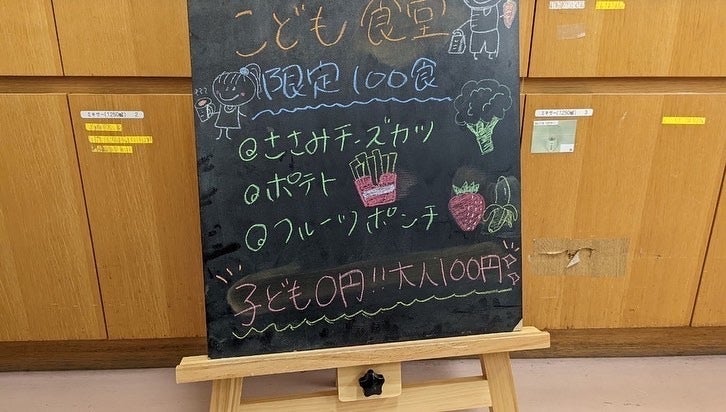 こども食堂
限定100食
@ささみチーズカツ
@ポテト
@フルーツポンチ
子ども0円!!大人100円
ミキサー(1250W) 2